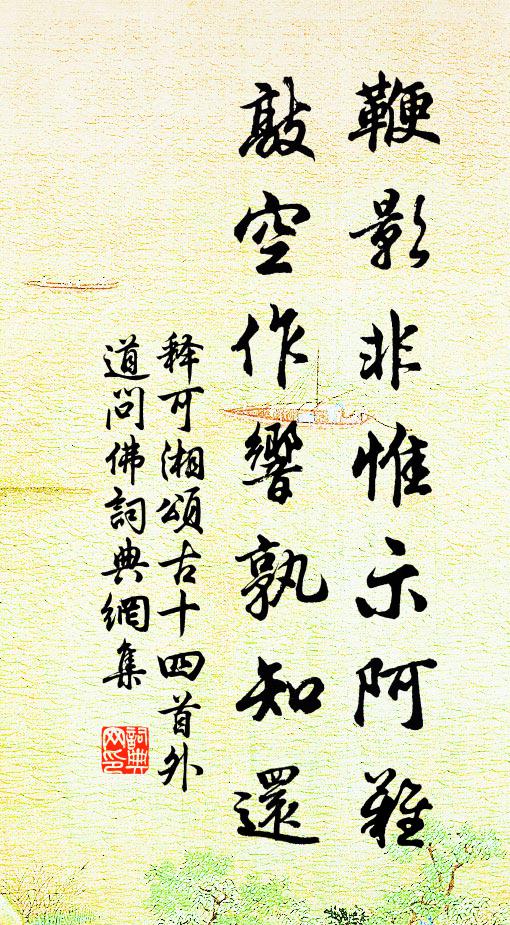 鞭影非惟示阿難
敲空作響孰知還
释可湘頌古十四首外
道問佛詞典網集
詞典
网印